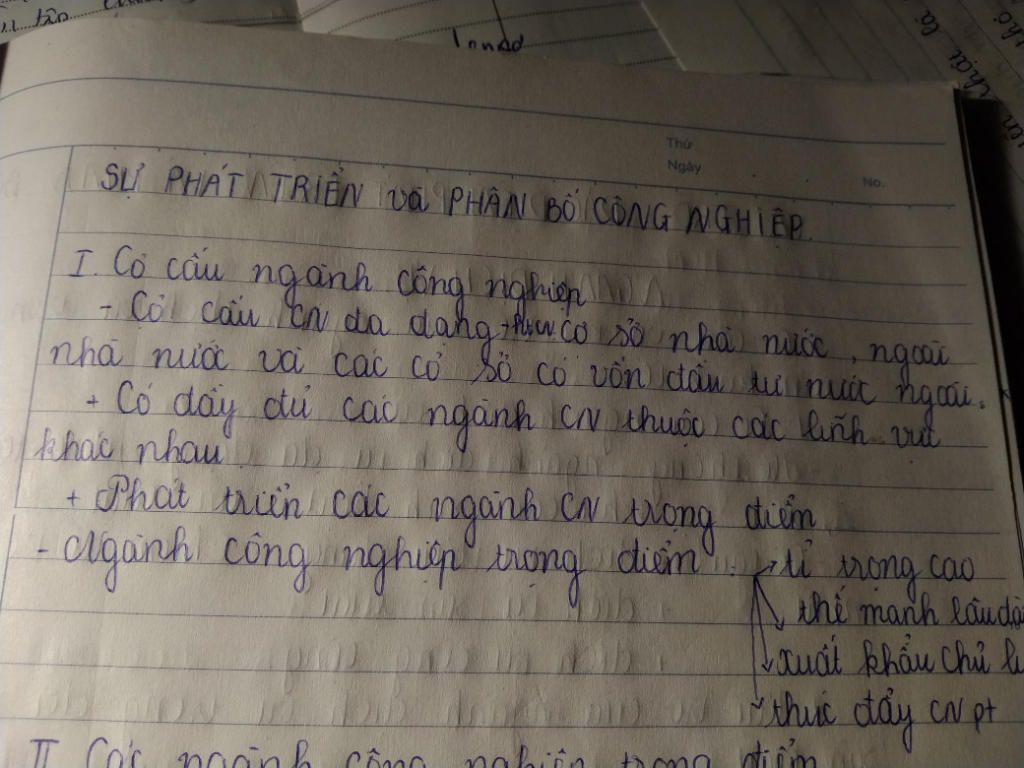 Thứ
Ngày
No.
SỰ PHÁT TRIỂN và PHÂN BỐ CÔNG NGHIỆP.
I. Cơ cấu ngành công nghiệp
- Cơ cấu CN đa dạng cơ sở nhà nước, ngoài
nhà nước và các cơ sở có vốn đầu tư nước ngoài.
+ Có đầy đủ các ngành CN thuộc các lĩnh vực
khác nhau
+ Phát triển các ngành CN trọng điểm
- Ngành công nghiệp trọng điểm : → tỉ trọng cao
thế mạnh lâu
→ xuất khẩu chủ
→ thúc đẩy CN pt
II Các ngành công nghiệp trọng điểm